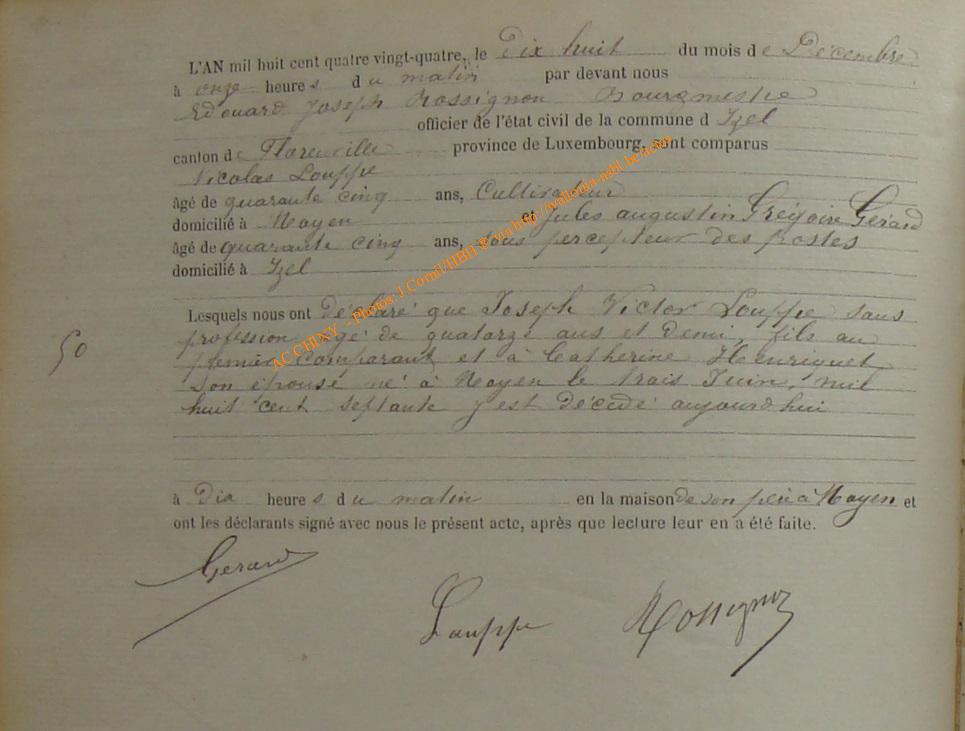 L'AN mil huit cent quatre vingt-quatre, le Dix huit du mois de Décembre
à onze heures du matin par devant nous
Edouard Joseph Rossignon Bourgmestre
officier de l'état civil de la commune d Izel
canton de Florenville province de Luxembourg, sont comparus
Nicolas Louppe
âgé de quarante cinq ans, Cultivateur
domicilié à Moyen et Jules augustin Grégoire Gerard
âgé de quarante cinq ans, sous percepteur des postes
domicilié à Izel
Lesquels nous ont déclaré que Joseph Victor Louppe sans
profession agé de quatorze ans et demi, fils au
premier comparant et à Catherine Henriquet
son épouse né à Moyen le trois Juin, mil
huit cent septante y est décédé aujourd'hui
50
à dix heures du matin en la maison de son père à Moyen et
ont les déclarants signé avec nous le présent acte, après que lecture leur en a été faite.
Gerard
Louppe Rossignon
ACCHIXY - Photos: J.Cornil/HBH @ via http://wallonia-asbl.be/acces